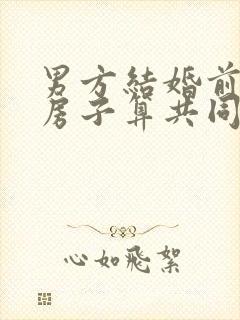 男方結婚前
房子算共同
心如飛絮